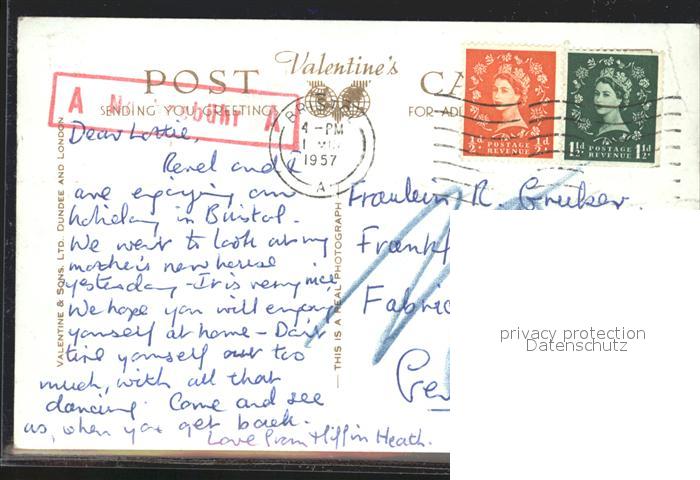 Valentine's
POST CA
SENDING YOU GREETINGS FOR-AD
A A
BRISTOL
4-PM
1
1957
A
½d ½d
POSTAGE
REVENUE
1½d 1½d
POSTAGE
REVENUE
VALENTINE & SONS, LTD. DUNDEE AND LONDON
THIS IS A REAL PHOTOGRAPH
Dear Lottie,
and I
are enjoying our
holiday in Bristol.
We went to look at my
mother's new house
yesterday - It is very nice.
We hope you will enjoy
yourself at home - Don't
tire yourself out too
much, with all that
dancing. Come and see
us, when you get back.
Love from Heath.
Fraulein R. Gruber.
Frankf
Fabric
Ge
privacy protection
Datenschutz